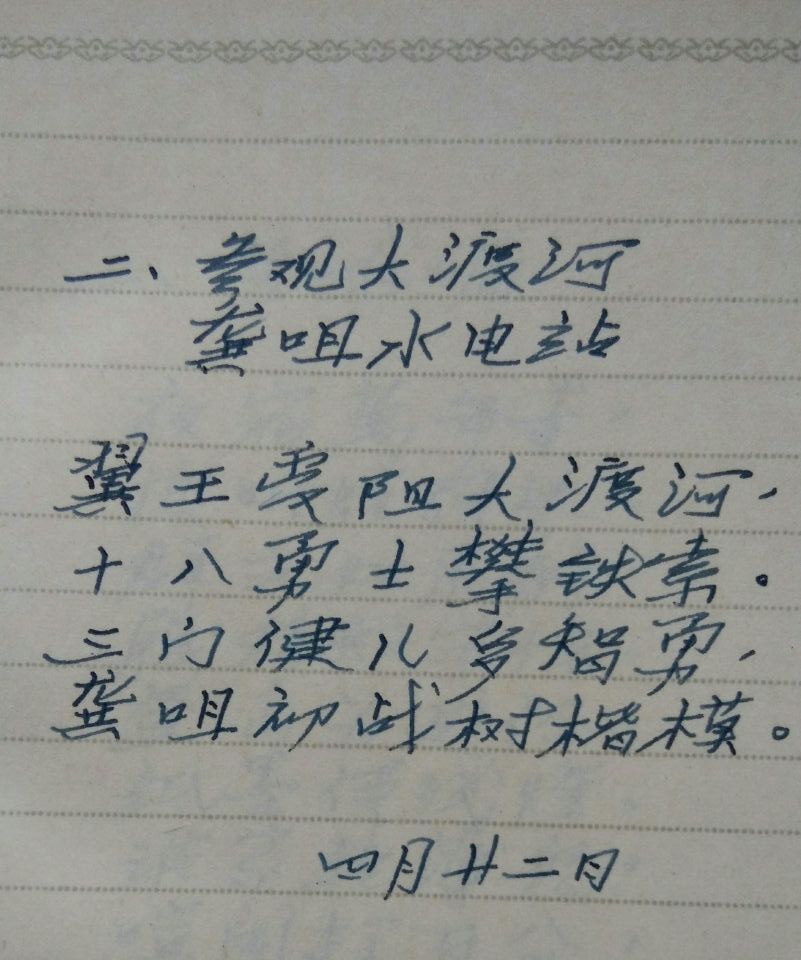 二、参观大渡河
龚咀水电站
翼王受阻大渡河，
十八勇士攀铁索。
三门健儿多智勇，
龚咀初战树楷模。
四月廿二日